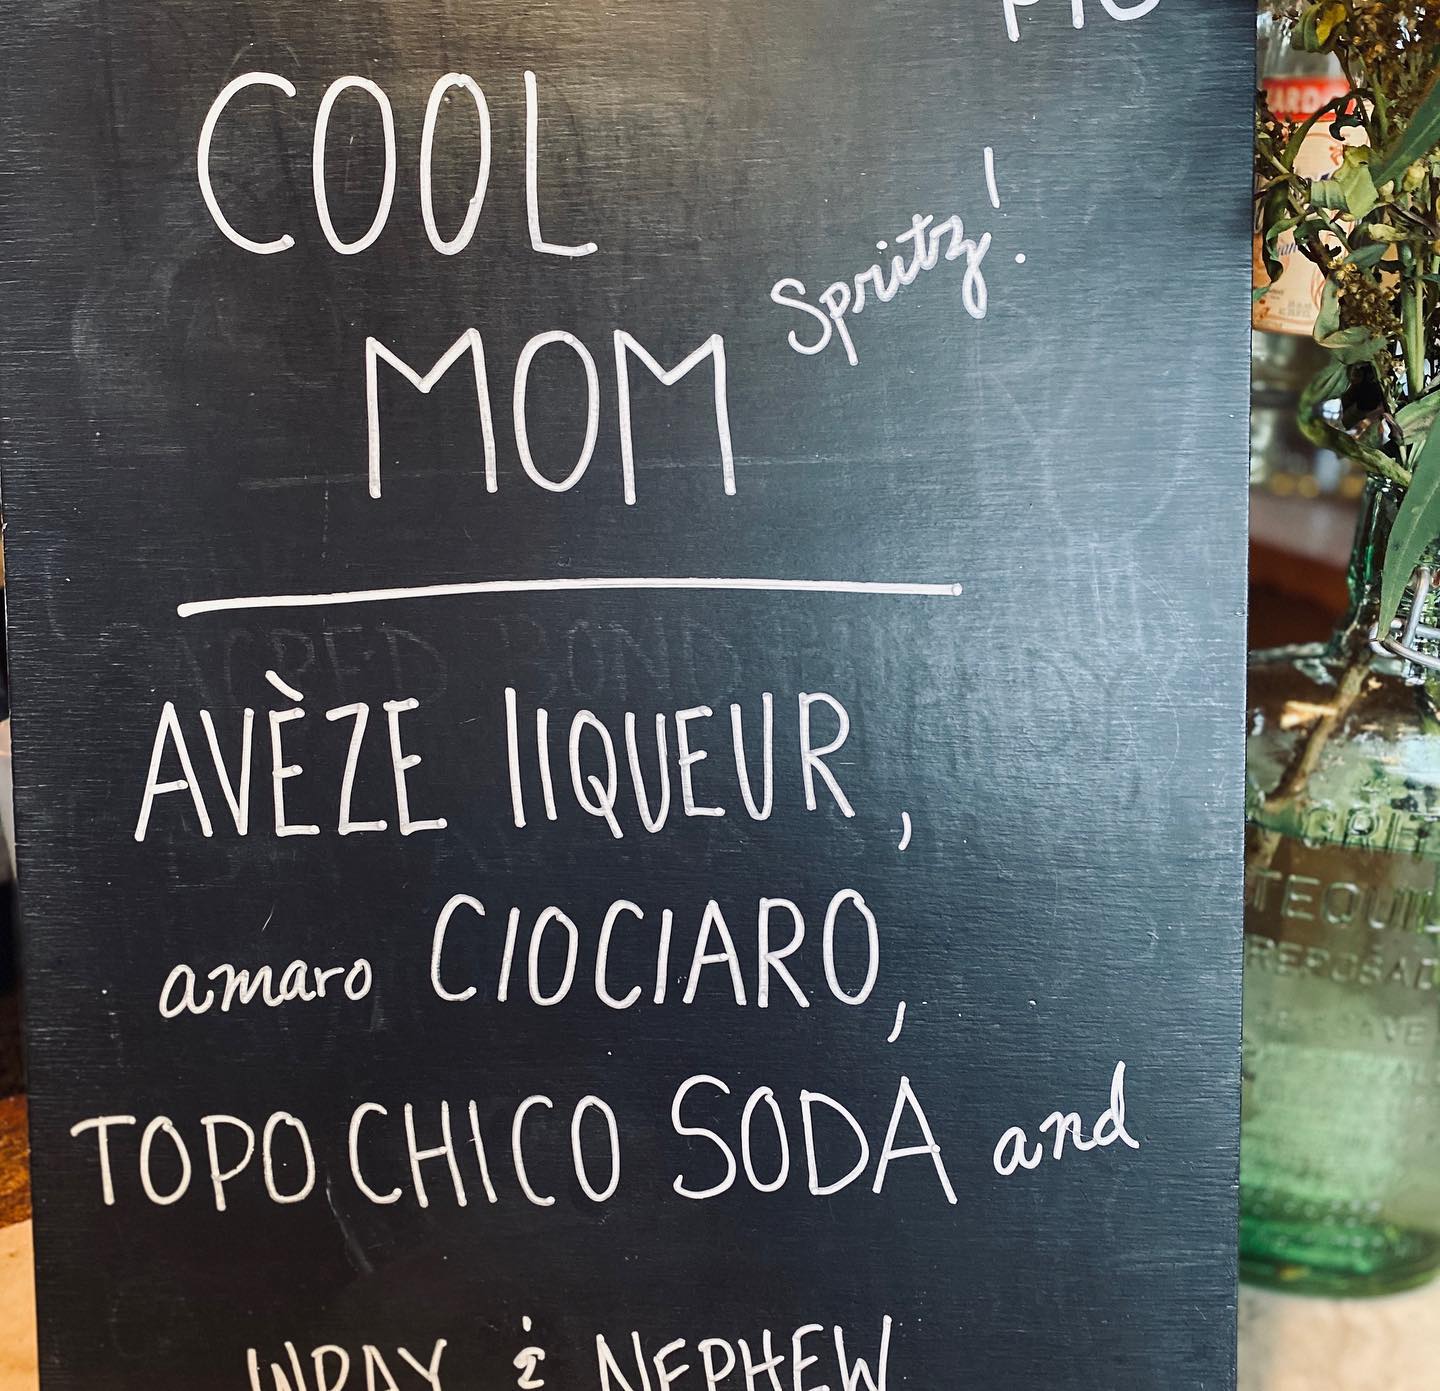 COOL
MOM Spritz!
AVÈZE lIQUEUR,
amaro CIOCIARO,
TOPO CHICO SODA and
WRAY & NEPHEW
TEQUIL
REPOSAD